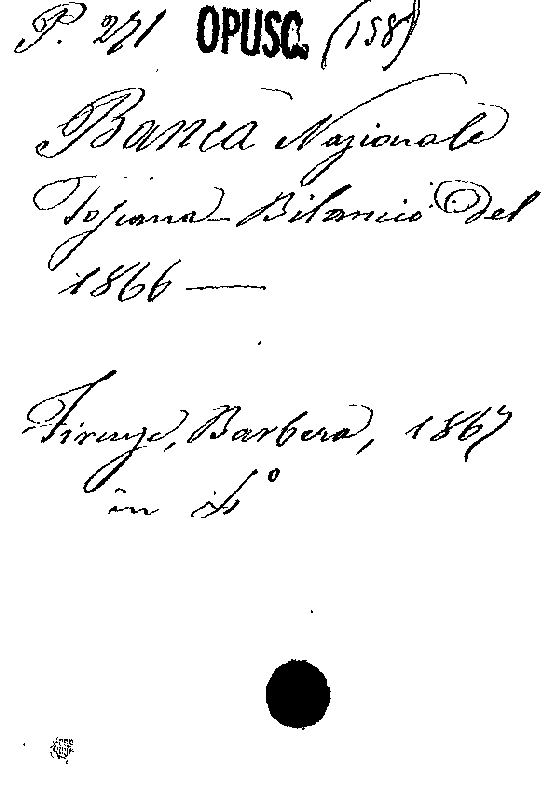 P. 271 OPUSC. (158)
Banca Nazionale
Toscana Bilancio del
1866 —
Firenze, Barbera, 1867
in 4°